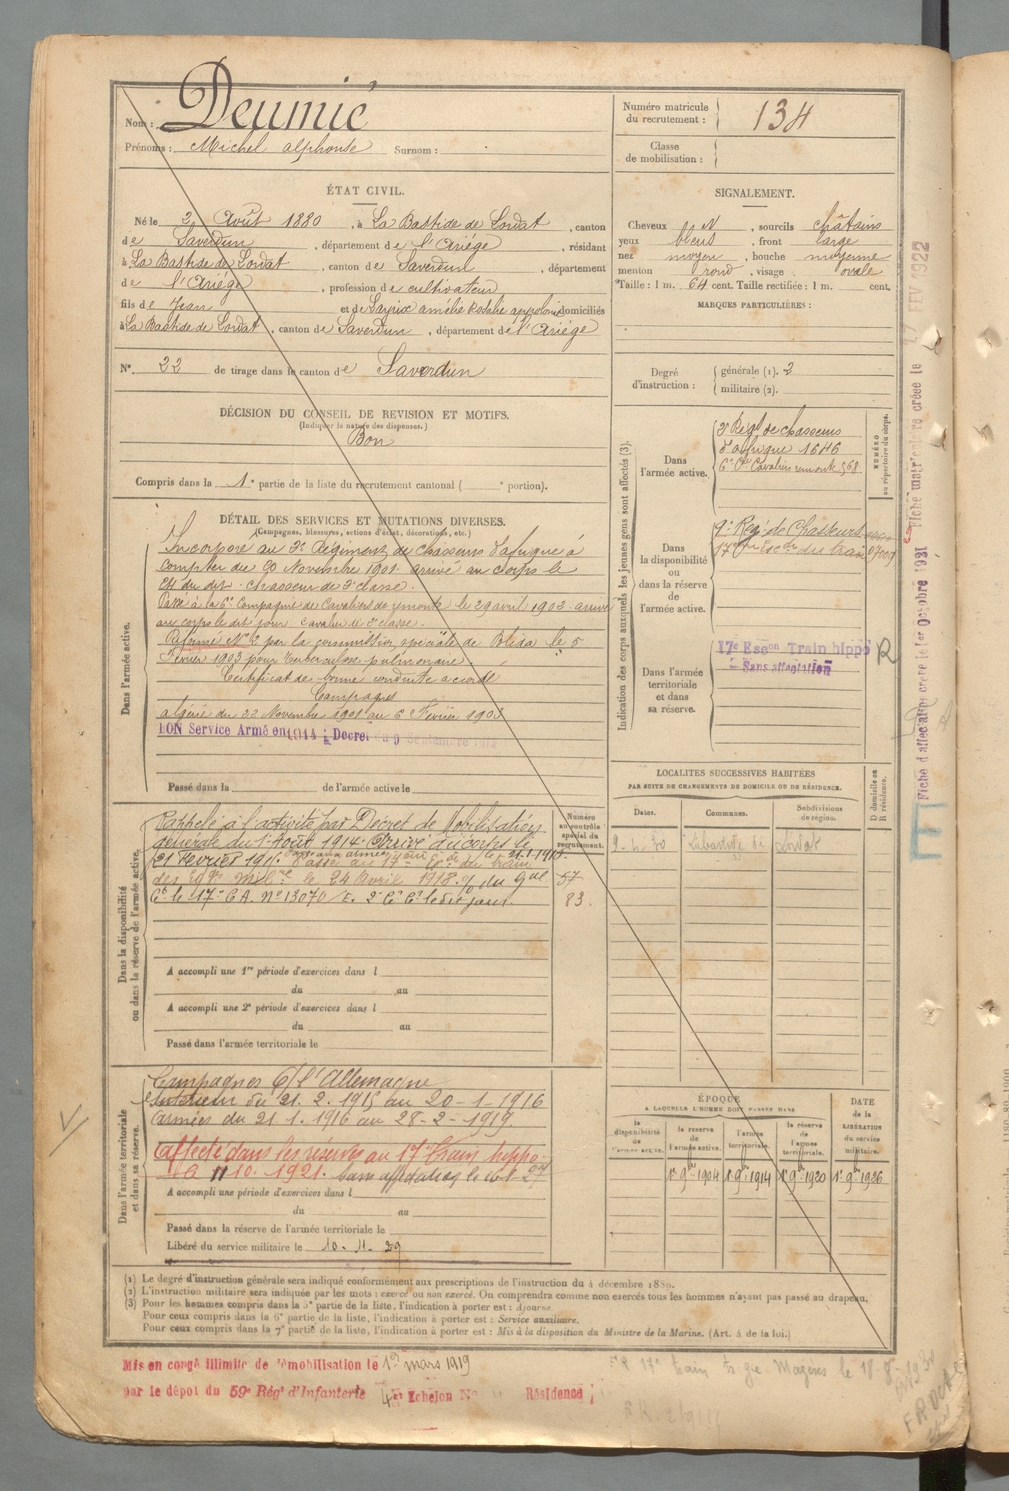 Nom : Deumié
Prénoms : Michel alphonse Surnom :
ÉTAT CIVIL.
Né le 2 Août 1880, à La Bastide de Lordat, canton
de Saverdun, département de l'Ariége, résidant
à La Bastide de Lordat, canton de Saverdun, département
de l'Ariége, profession de cultivateur
fils de Jean et de domiciliés
à La Bastide de Lordat, canton de Saverdun, département de l'Ariége
N° 22 de tirage dans le canton de Saverdun
DÉCISION DU CONSEIL DE REVISION ET MOTIFS.
(Indiquer la nature des dispenses.)
Bon
Compris dans la 1e partie de la liste du recrutement cantonal ( e portion).
DÉTAIL DES SERVICES ET MUTATIONS DIVERSES.
(Campagnes, blessures, actions d'éclat, décorations, etc.)
Dans l'armée active.
Incorporé au 3e Régiment de chasseurs d'afrique à
compter du 20 Novembre 1901 arrivé au corps le
24 du dit. chasseur de 2e classe
Passé à la 6e Compagnie de Cavaliers de remonte le 29 avril 1902 arrivé
au corps le dit jour cavalier de 2e classe.
Réformé N°2 par la commission spéciale de Blida le 5
Février 1903 pour tuberculose pulmonaire.
Certificat de bonne conduite accordé
Campagnes
algérie du 22 Novembre 1901 au 6 Février 1903
BON Service Armé en 1914 Decret du 9 Septembre 1914
Passé dans l de l'armée active le
Dans la disponibilité
ou dans la réserve de l'armée active.
Numéro
au contrôle
spécial du
recrutement.
Rappelé à l'activité par Décret de Mobilisation
générale du 1er Août 1914 Arrivé au corps le
21 Février 1915. Passé au 17e du train
des Eqges Milres le 24 Avril 1918. du Gal
Ct le 17e C.A. N° 13070/E. 2e Cie Ct le dit jour.
57
83.
A accompli une 1re période d'exercices dans l
du au
A accompli une 2e période d'exercices dans l
du au
Passé dans l'armée territoriale le
Dans l'armée territoriale
et dans sa réserve.
Campagnes C/ l'Allemagne
Intérieur du 21. 2. 1915 au 20-1-1916
Armées du 21. 1. 1916 au 28-2-1919.
Affecté dans les réserves au 17e Train hippo-
10. 1921. Sans affectation le 27
A accompli une période d'exercices dans l
du au
Passé dans la réserve de l'armée territoriale le
Libéré du service militaire le 10. 11. 29
Numéro matricule
du recrutement : 134
Classe
de mobilisation :
SIGNALEMENT.
Cheveux et, sourcils châtains
yeux bleus, front large
nez moyen, bouche moyenne
menton rond, visage ovale
Taille : 1 m. 64 cent. Taille rectifiée : 1 m. cent.
MARQUES PARTICULIÈRES :
Degré
d'instruction :
générale (1). 2
militaire (2).
Indication des corps auxquels les jeunes gens sont affectés (3).
NUMÉRO
au répertoire du corps.
Dans
l'armée active.
3e Régt de chasseurs
d'afrique 1646
6e Cie Cavaliers remonte 568
Dans
la disponibilité
ou
dans la réserve
de
l'armée active.
9e Rég. de Chasseurs
17e Escon du train 07009
Dans l'armée
territoriale
et dans
sa réserve.
17e Escon Train hippo R
Sans affectation
LOCALITES SUCCESSIVES HABITÉES
PAR SUITE DE CHANGEMENTS DE DOMICILE OU DE RÉSIDENCE.
Dates.
Communes.
Subdivisions
de région.
D domicile ou
R résidence.
9-4-30 Labastide de Lordat
ÉPOQUE
A LAQUELLE L'HOMME DOIT PASSER DANS
DATE
de la
LIBÉRATION
du service
militaire.
la
disponibilité
de
l'armée active.
la réserve
de
l'armée active.
l'armée
territoriale.
la réserve
de
l'armée
territoriale.
1er 9bre 1904 1er 9bre 1914 1er 9bre 1920 1er 9bre 1926
(1) Le degré d'instruction générale sera indiqué conformément aux prescriptions de l'instruction du 4 décembre 1889.
(2) L'instruction militaire sera indiquée par les mots : exercé ou non exercé. On comprendra comme non exercés tous les hommes n'ayant pas passé au drapeau.
(3) Pour les hommes compris dans la 5e partie de la liste, l'indication à porter est : Ajourné.
Pour ceux compris dans la 6e partie de la liste, l'indication à porter est : Service auxiliaire.
Pour ceux compris dans la 7e partie de la liste, l'indication à porter est : Mis à la disposition du Ministre de la Marine. (Art. 4 de la loi.)
Mis en congé illimité de démobilisation le 1er mars 1919
par le dépôt du 59e Régt d'Infanterie 4e Echelon N° Résidence
Fiche matriculaire créée le 17 FEV 1922
Fiche d'affectation créée le 1er Octobre 1931